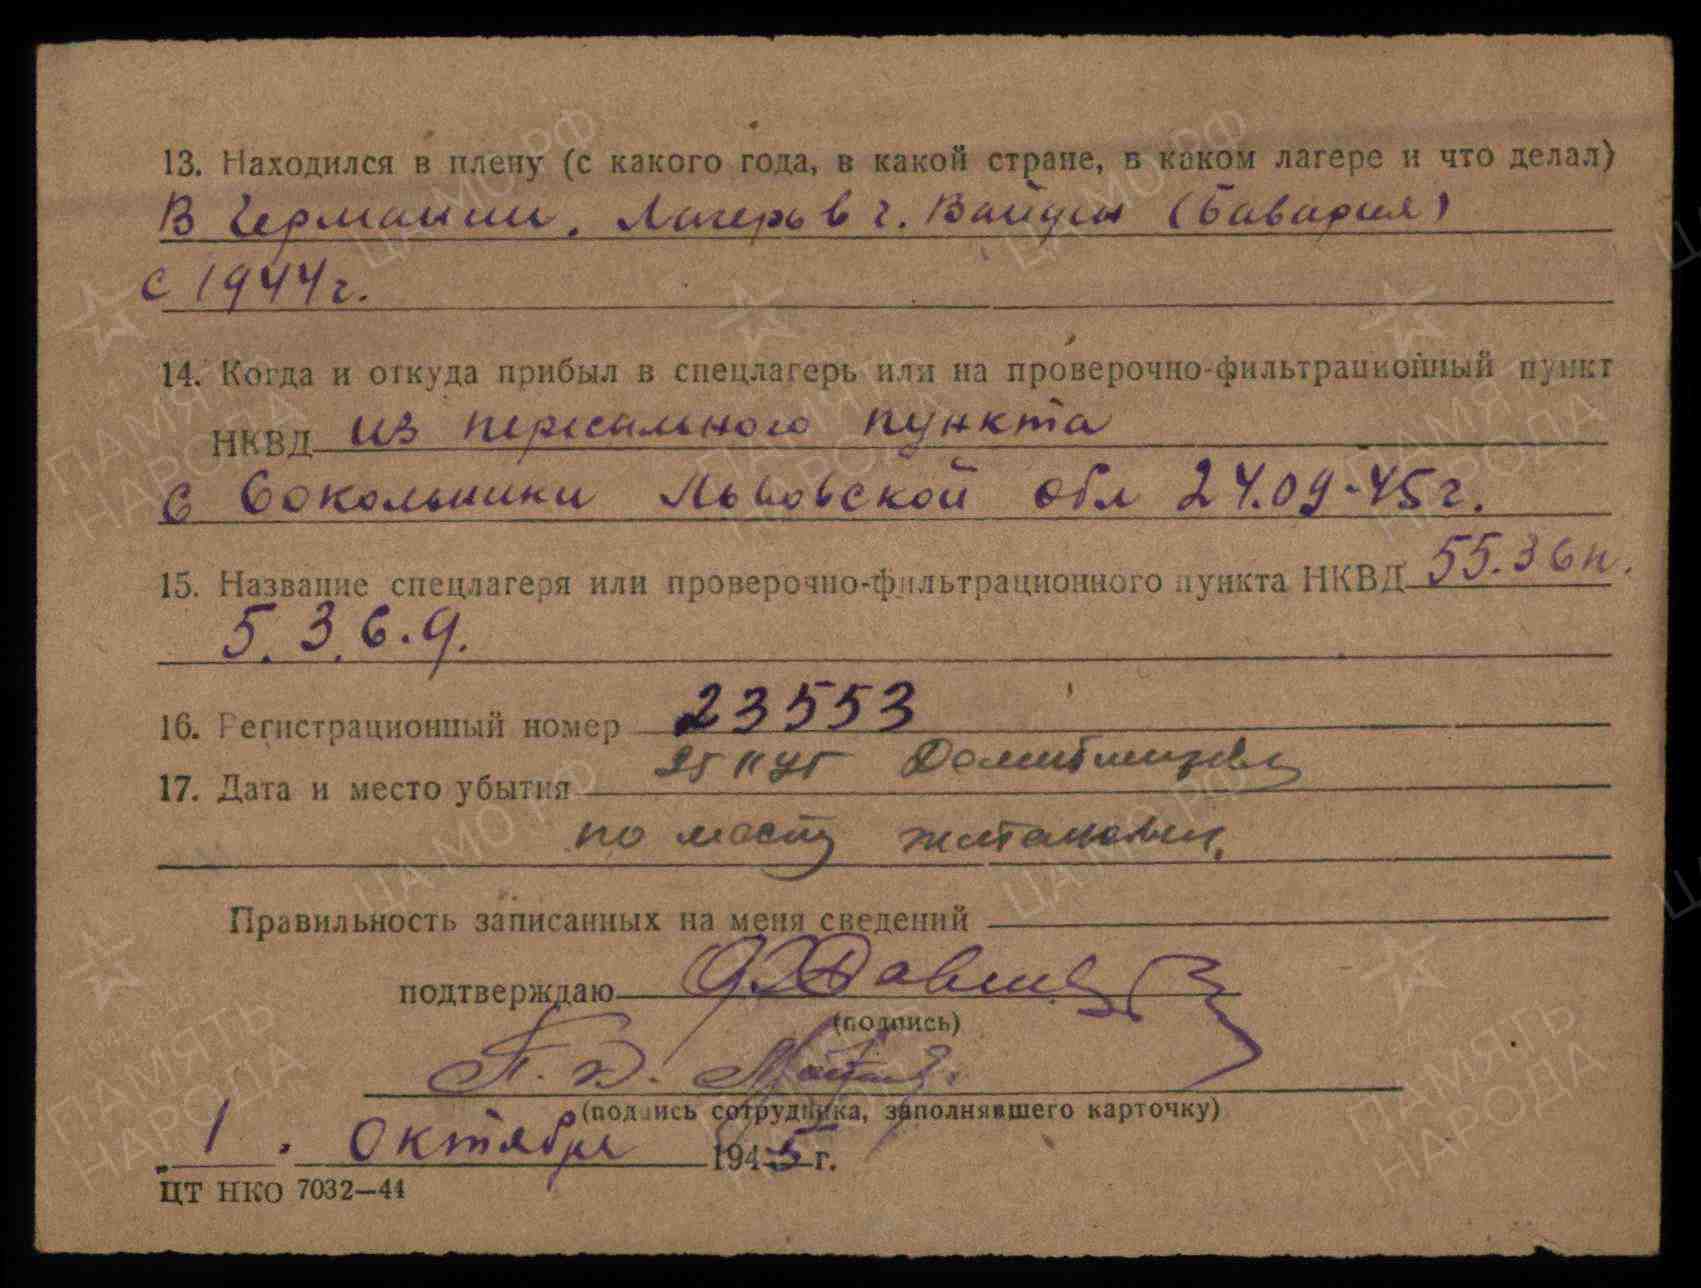 13. Находился в плену (с какого года, в какой стране, в каком лагере и что делал)
В Германии. Лагерь в г. Вайден (Бавария)
с 1944 г.
14. Когда и откуда прибыл в спецлагерь или на проверочно-фильтрационный пункт
НКВД из пересыльного пункта
с Сокольники Львовской обл 24.09.45 г.
15. Название спецлагеря или проверочно-фильтрационного пункта НКВД 55.3 бп.
5.3.6.д.
16. Регистрационный номер 23553
25 11 45
17. Дата и место убытия
по месту жительства.
Правильность записанных на меня сведений
подтверждаю
(подпись)
(подпись сотрудника, заполнявшего карточку)
1. Октября 1945 г.
ЦТ НКО 7032—44
ЦА МО РФ
ПАМЯТЬ
НАРОДА